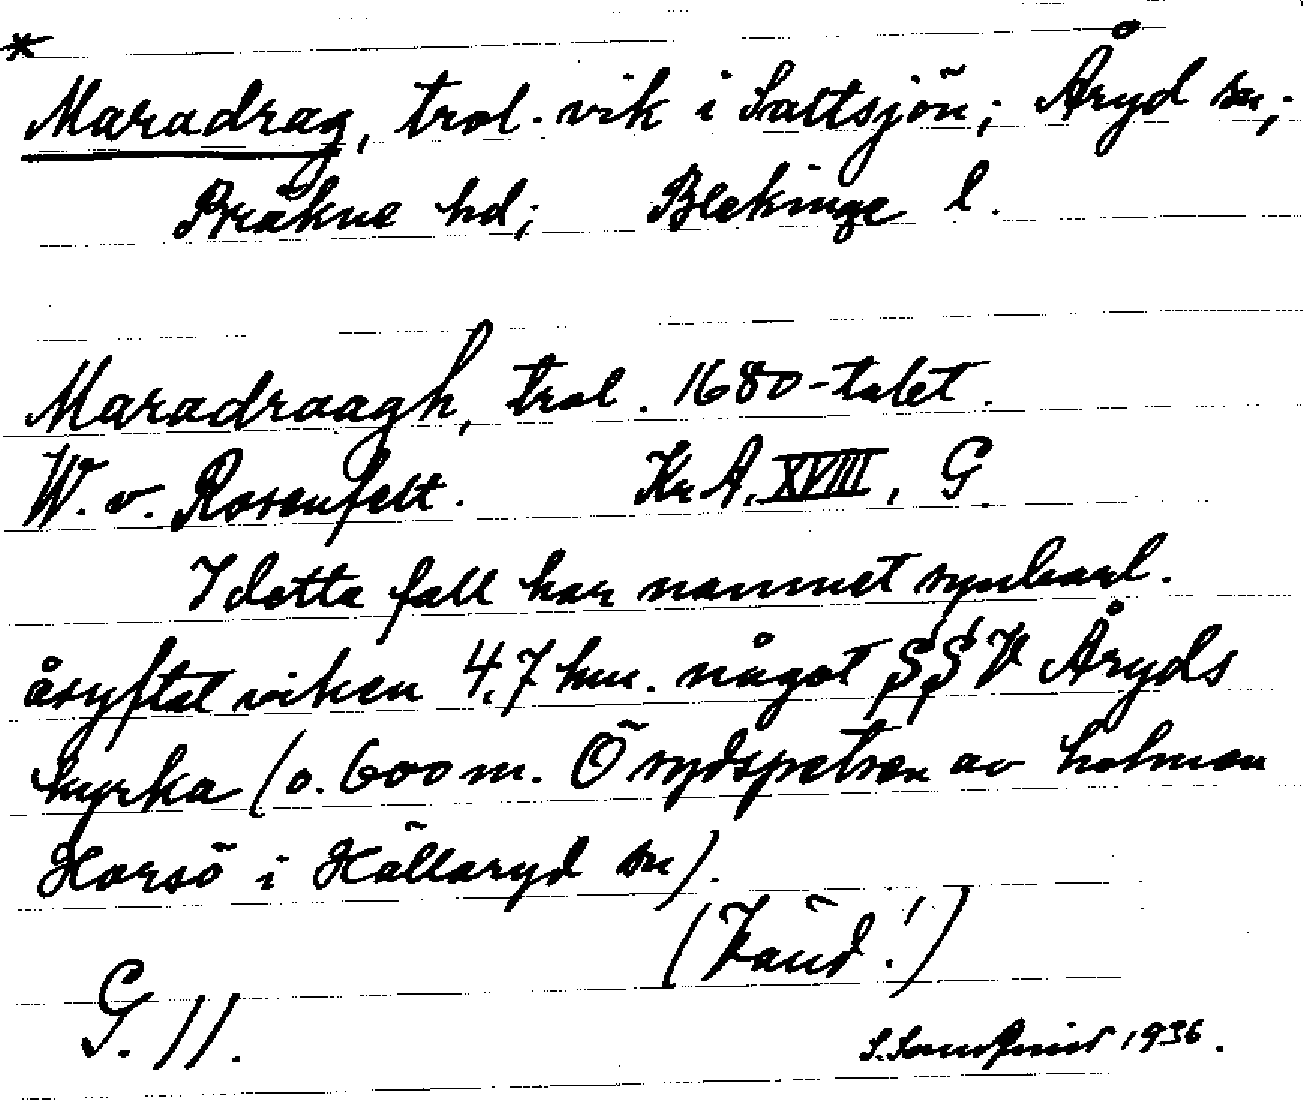 *
Maradrag, trol. vik i Saltsjön; Åryd sn;
Bräkne hd; Blekinge l.
Maradraagh, trol. 1680-talet.
W. v. Rosenfelt. Kr A, XVIII, G.
I detta fall har namnet synbarl.
åsyftat viken 4,7 km. något SSV Åryds
kyrka (o. 600 m. Ö sydspetsen av holmen
Horsö i Hällaryd sn).
(Känd!)
G. 11.
S. Sandquist 1936.